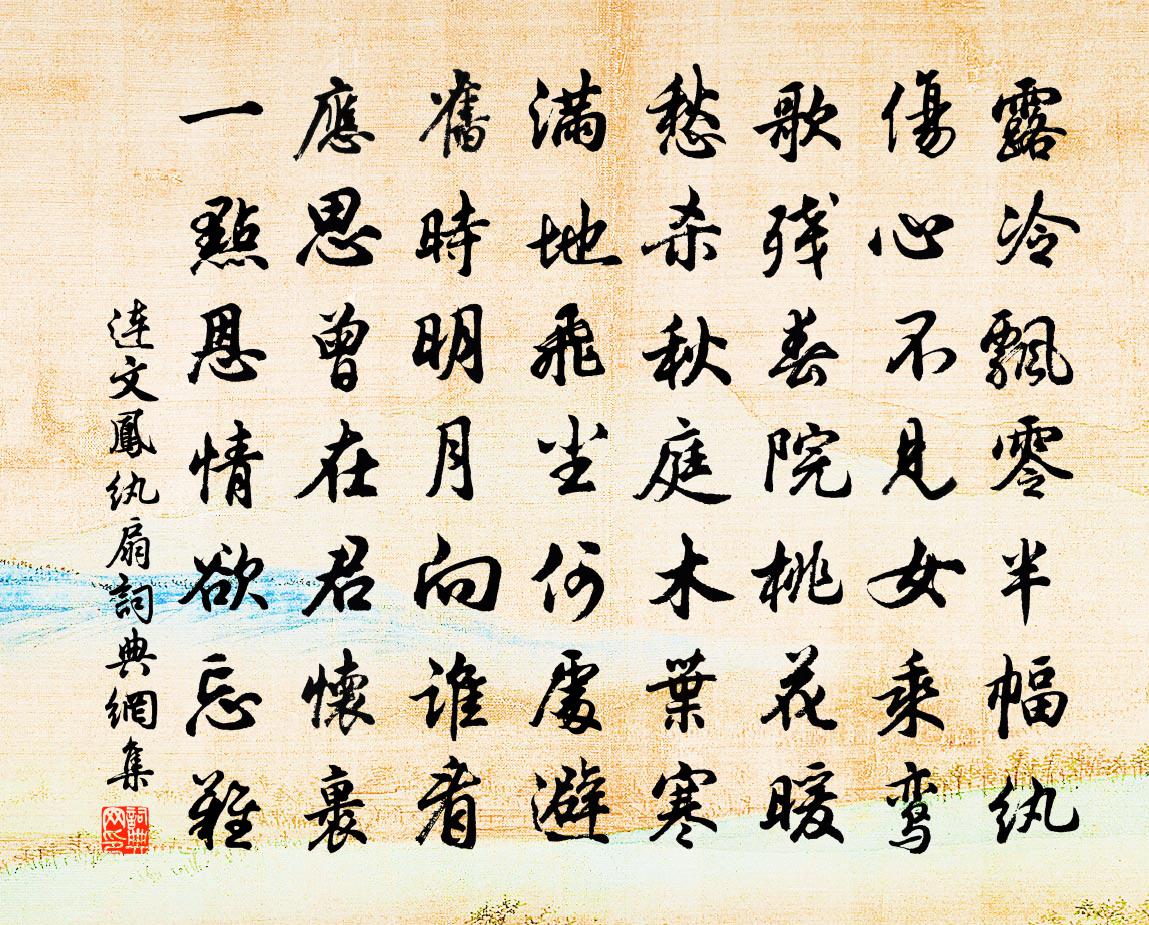 露冷飄零半幅紈
傷心不見女乘鸞
歌殘春院桃花暖
愁殺秋庭木葉寒
滿地飛塵何處避
舊時明月向誰看
應思曾在君懷裏
一點恩情欲忘難
連文鳳紈扇詞典網集
詞典网印